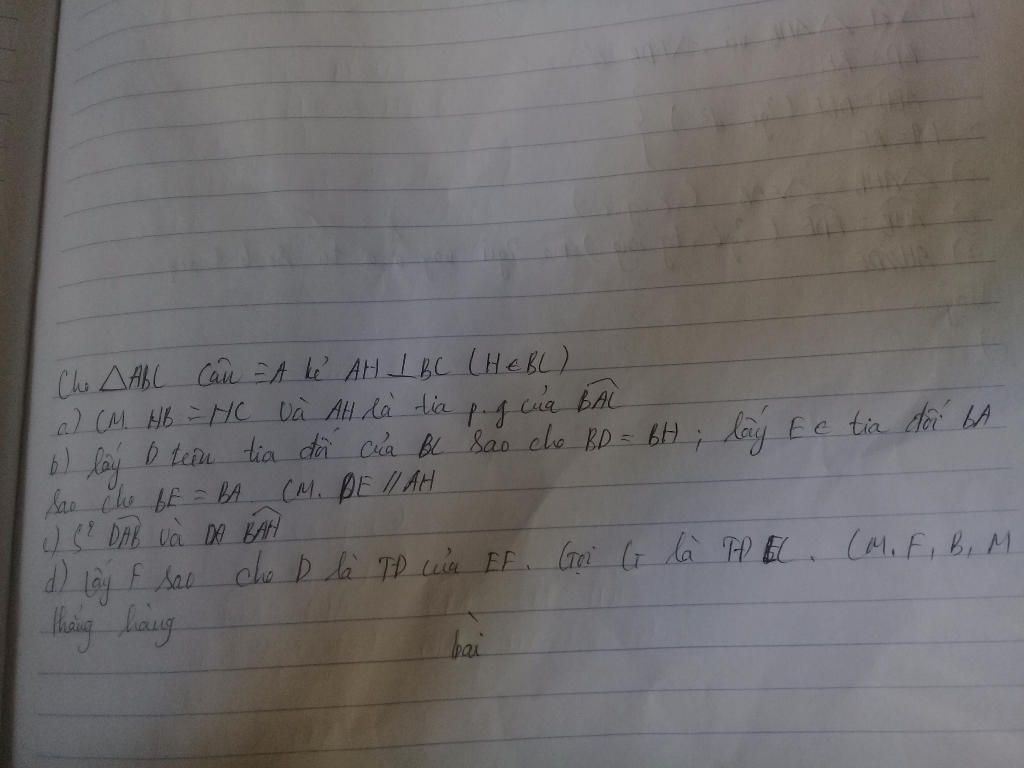 Cho △ABC cân ≡A kẻ AH⊥BC (H∈BC)
a) CM. HB = HC và AH là tia p.g của BAC
b) lấy D trên tia đối của BC sao cho BD = BH ; lấy E ∈ tia đối BA
sao cho BE = BA CM. DE // AH
c) S² DAB và DA BAH
d) Lấy F sao cho D là TĐ của EF. Gọi G là TĐ EC. CM. F, B, M
thẳng hàng
bài